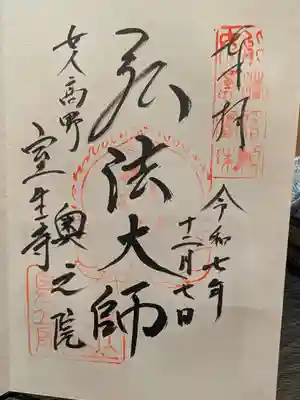 奉拝
令和七年
十二月七日
弘法大師
女人高野
室生寺 奥之院